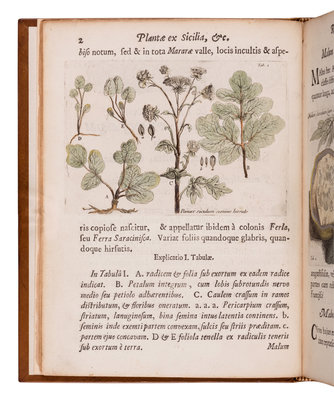 2 Plantæ ex Sicilia, &c.
biso notum, sed & in tota Mazaræ valle, locis incultis & aspe-
Tab. 1
A
B
C
D
E
Panax siculum semine hirsuto
ris copiose nascitur, & appellatur ibidem à colonis Ferla,
seu Ferra Saracinisca. Variat foliis quandoque glabris, quan-
doque hirsutis.
Explicutio I. Tabulæ.
In Tabulâ I. A. radicem & folia sub exortum ex eadem radice
indicat. B. Petalum integrum, cum lobis subrotundis nervo
medio seu petiolo adhærentibus. C. Caulem crassum in ramos
distributum, & floribus oneratum. a. a. a. Pericarpium crassum,
striatum, lanuginosum, bina semina intus latentia continens. b.
seminis inde exempti partem convexam, sulcis seu striis præditam. c.
partem ejus concavam. D & E foliola tenella ex radiculis teneris
sub exortum è terra.
Malum